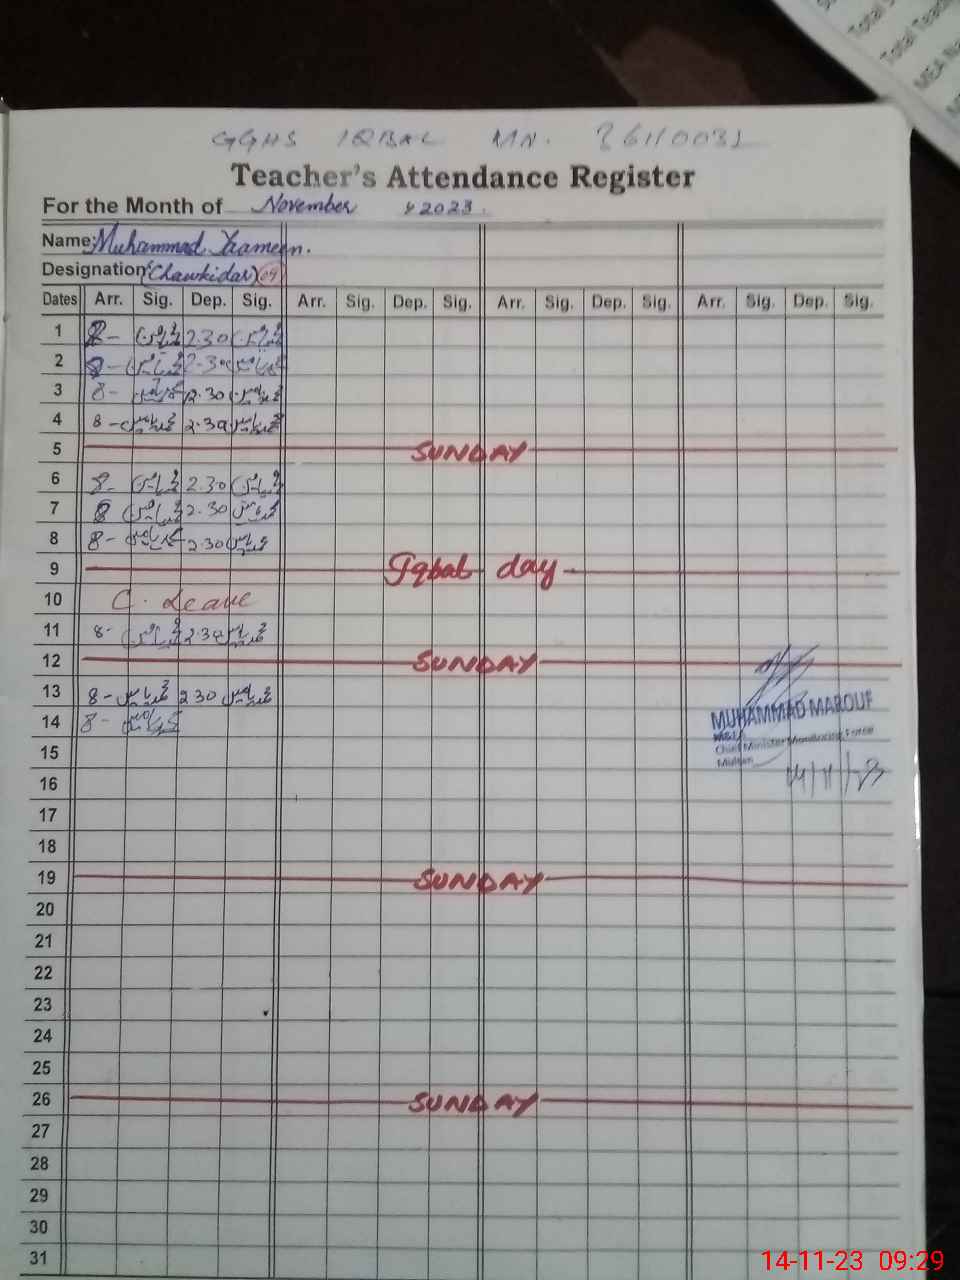 GGHS IQBAL MN. 36110032
Teacher's Attendance Register
For the Month of November 2023.
Name: Muhammad Yaameen.
Designation (Chawkidar) 09
Dates Arr. Sig. Dep. Sig. Arr. Sig. Dep. Sig. Arr. Sig. Dep. Sig. Arr. Sig. Dep. Sig.
1 8- 2.30
2 8- 2.30
3 8- 2.30
4 8- 2.30
5 SUNDAY
6 8- 2.30
7 8 2.30
8 8- 2.30
9 Iqbal day
10 C. Leave
11 8- 2.30
12 SUNDAY
13 8- 2 30
14 8-
MUHAMMAD MAROUF
Chief Minister Monitoring Force
Multan
14/11/23
15
16
17
18
19 SUNDAY
20
21
22
23
24
25
26 SUNDAY
27
28
29
30
31
Total Tea
MEA Na
14-11-23 09:29